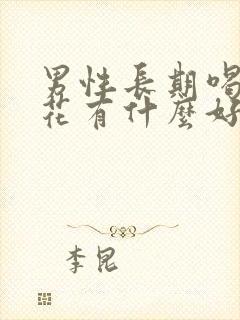 男性長期喝
花有什麼好
李昆